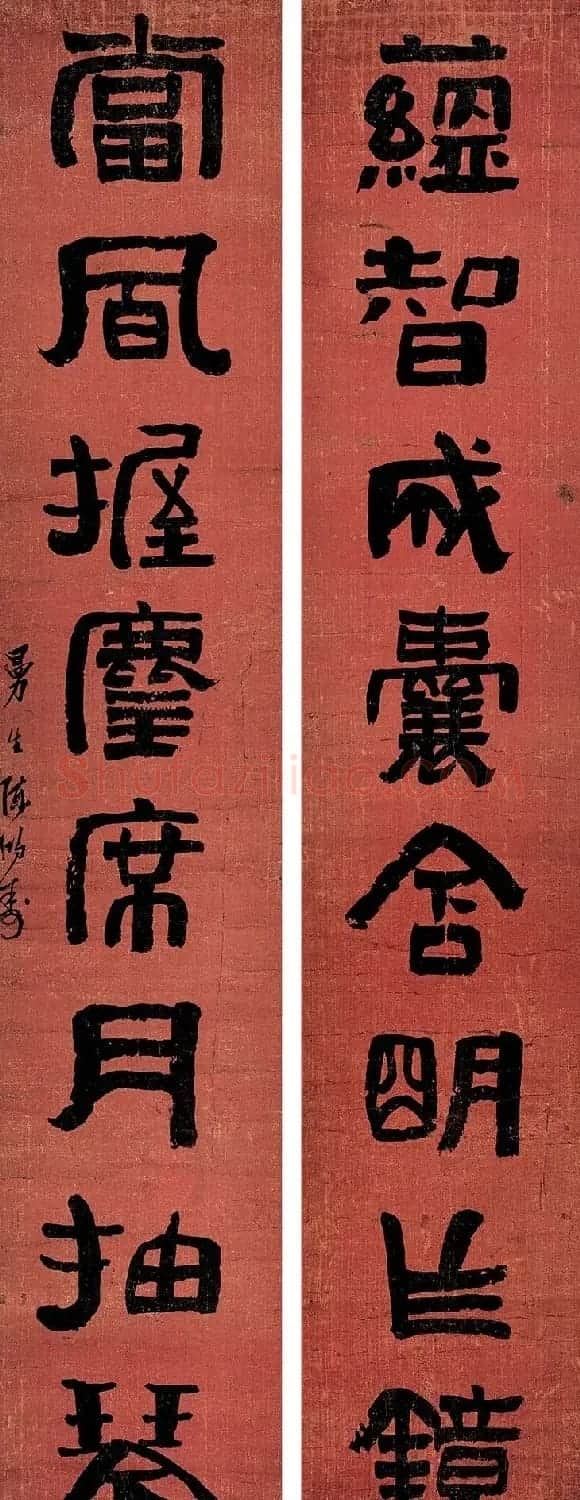 蘊智成囊含明乍鏡
當風握麈席月抽琴
曼生陳鴻壽
Shufaziliao.COM